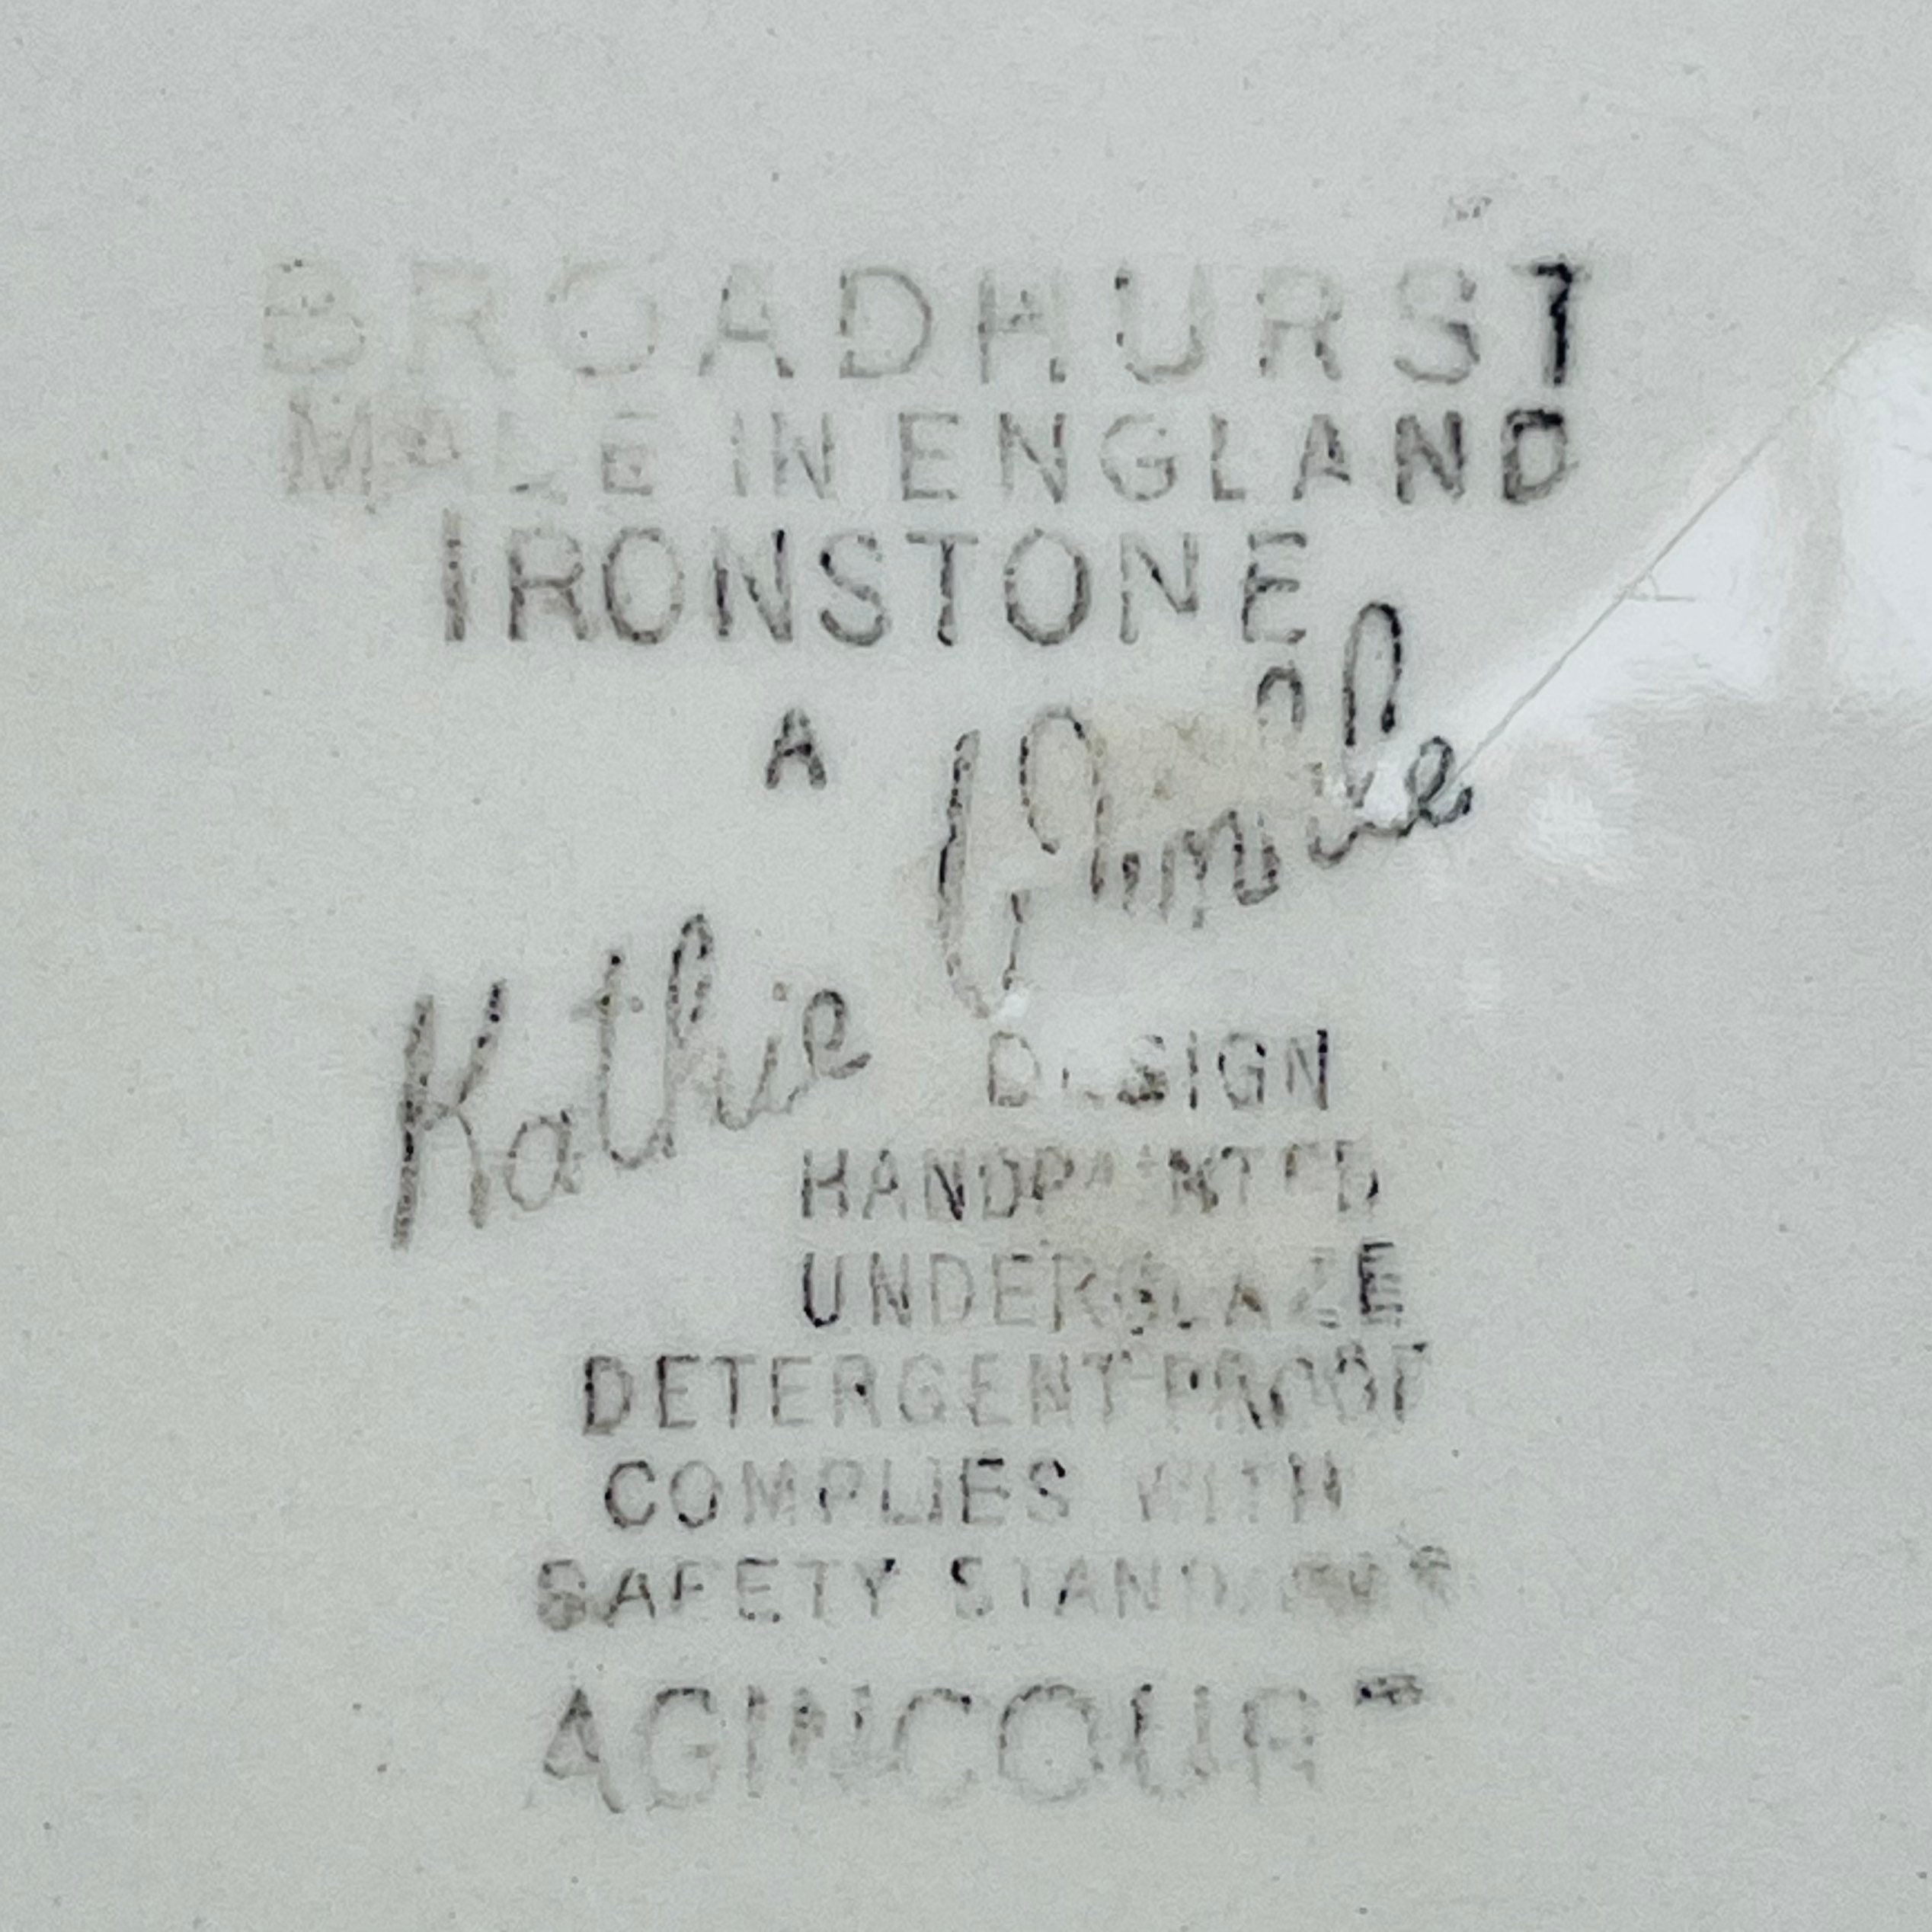 BROADHURST
MADE IN ENGLAND
IRONSTONE
A
Kathie Winkle
DESIGN
HANDPAINTED
UNDERGLAZE
DETERGENT PROOF
COMPLIES WITH
SAFETY STANDARDS
AGINCOURT